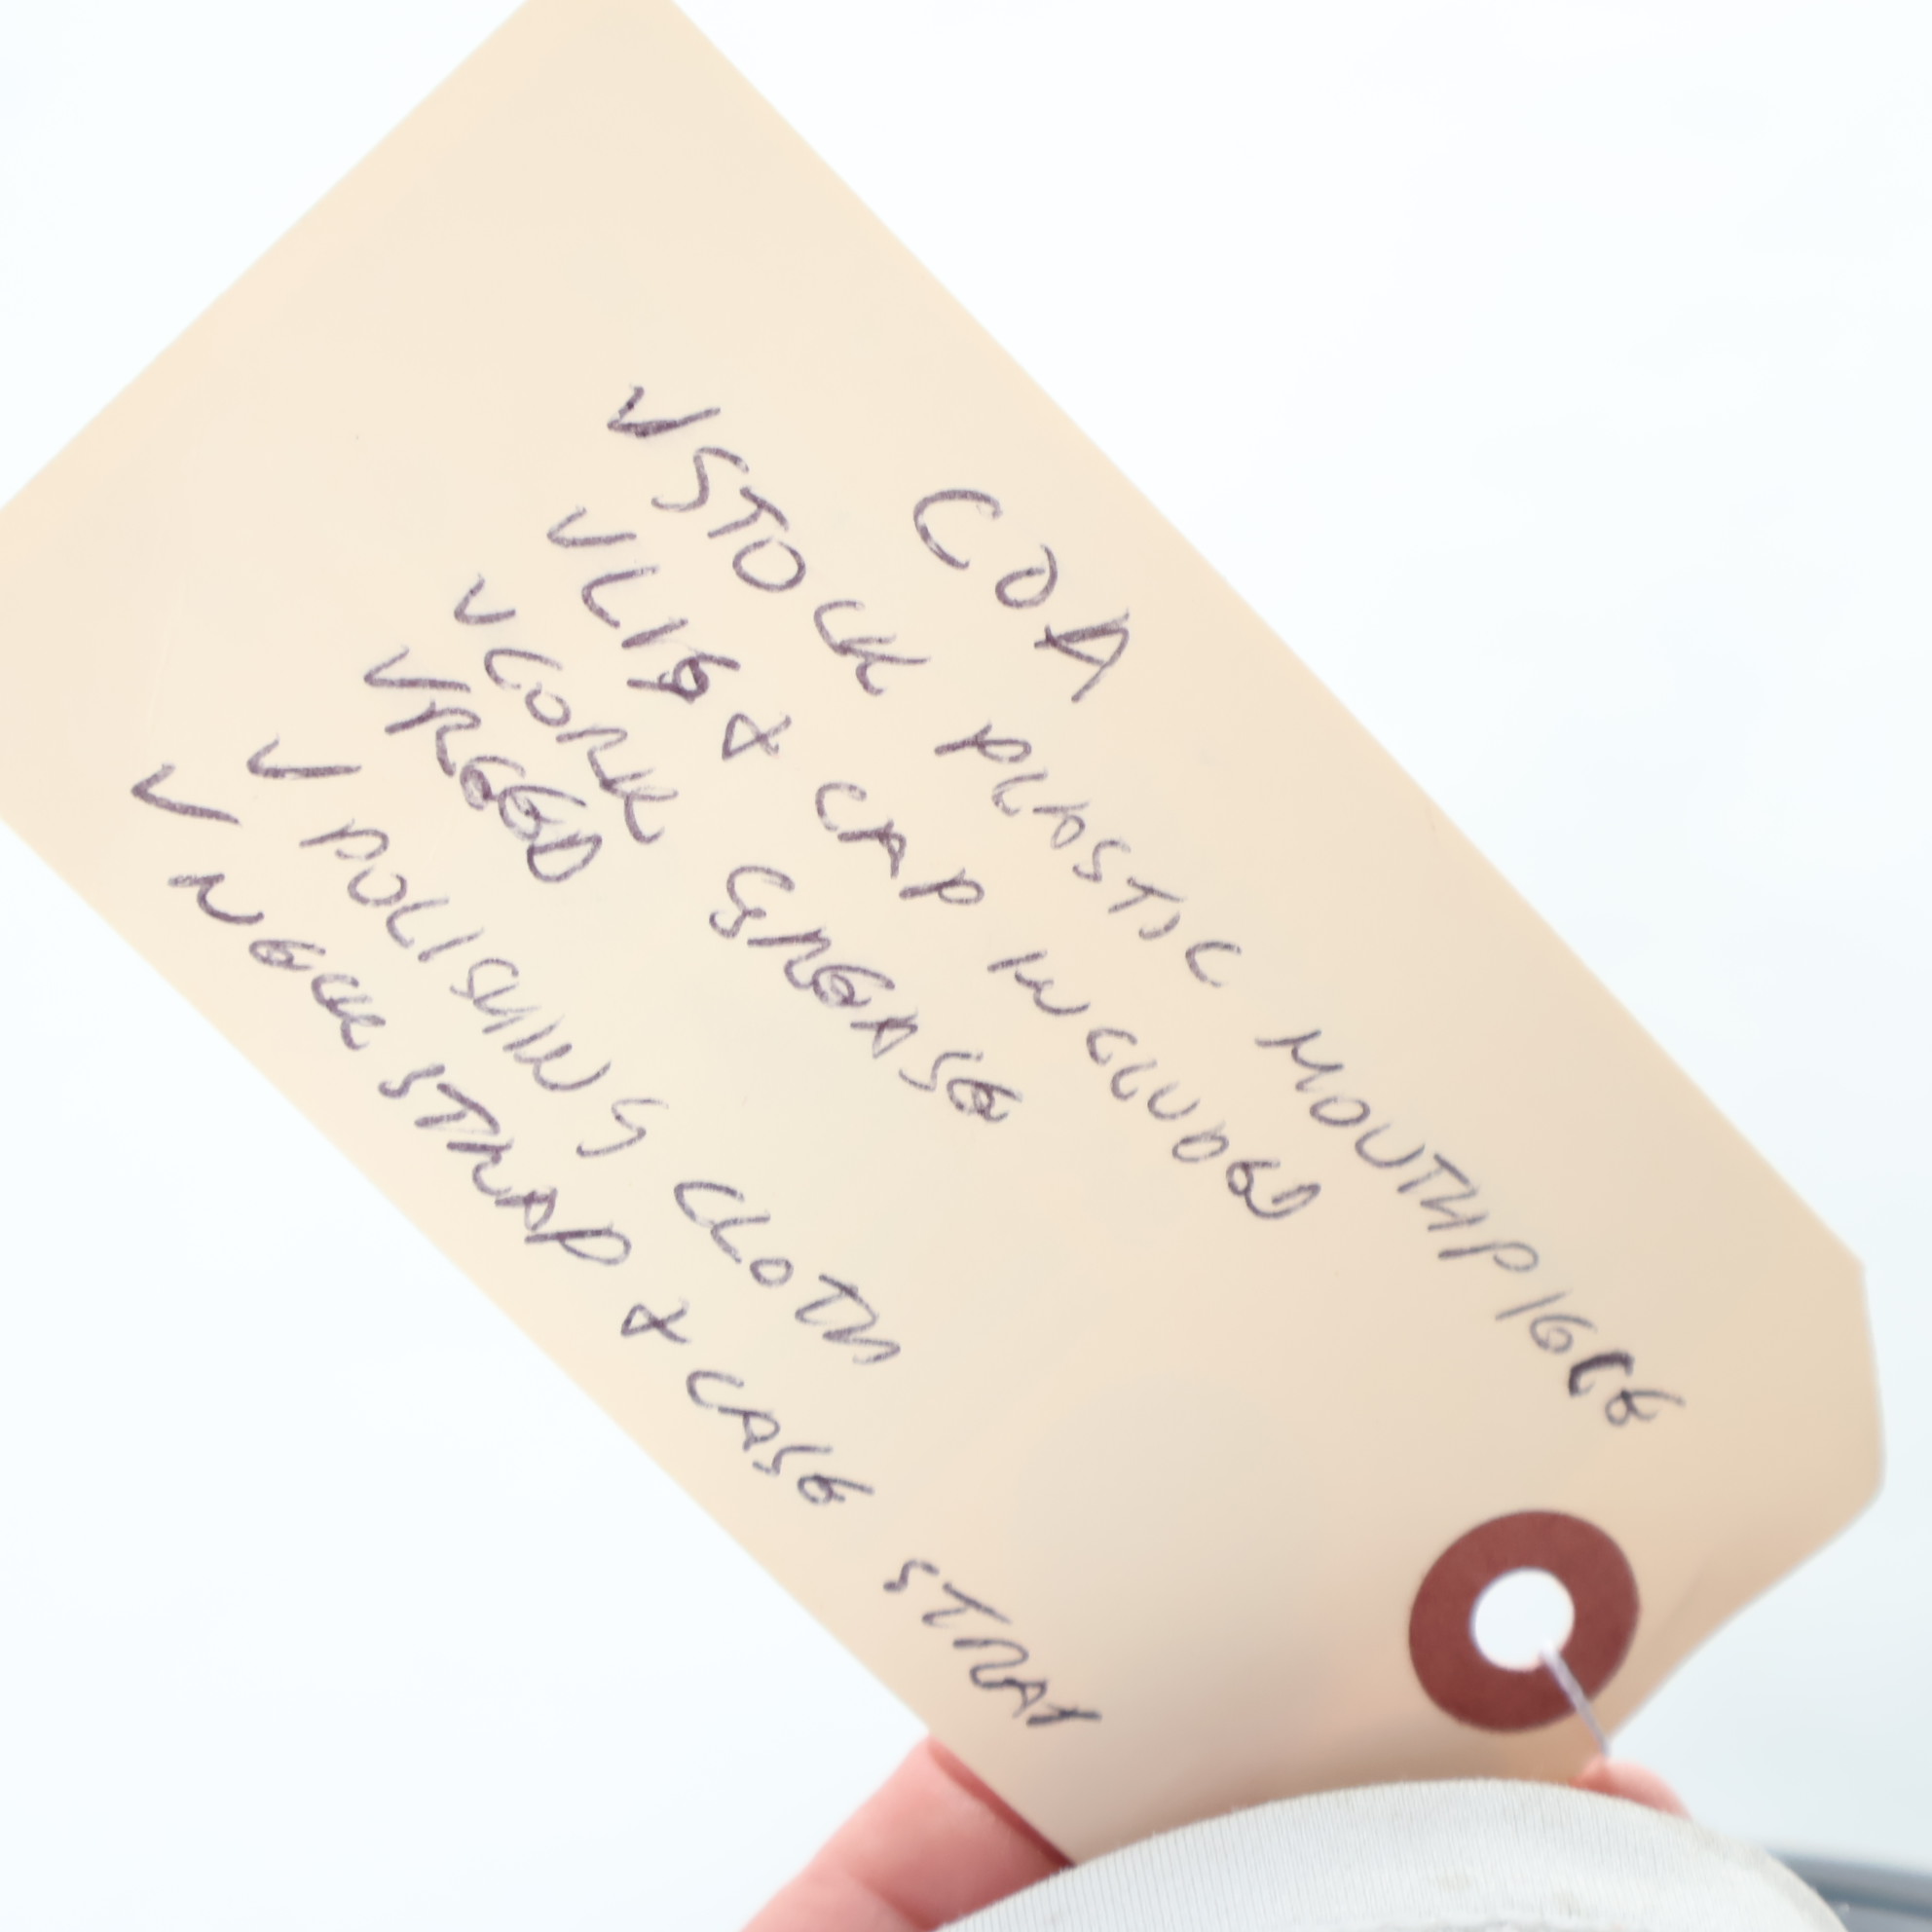 COA
✓ STOCK PLASTIC MOUTHPIECE
✓ LIG & CAP INCLUDED
✓ CORK GREASE
✓ REED
✓ POLISHING CLOTH
✓ NECK STRAP & CASE STRAP